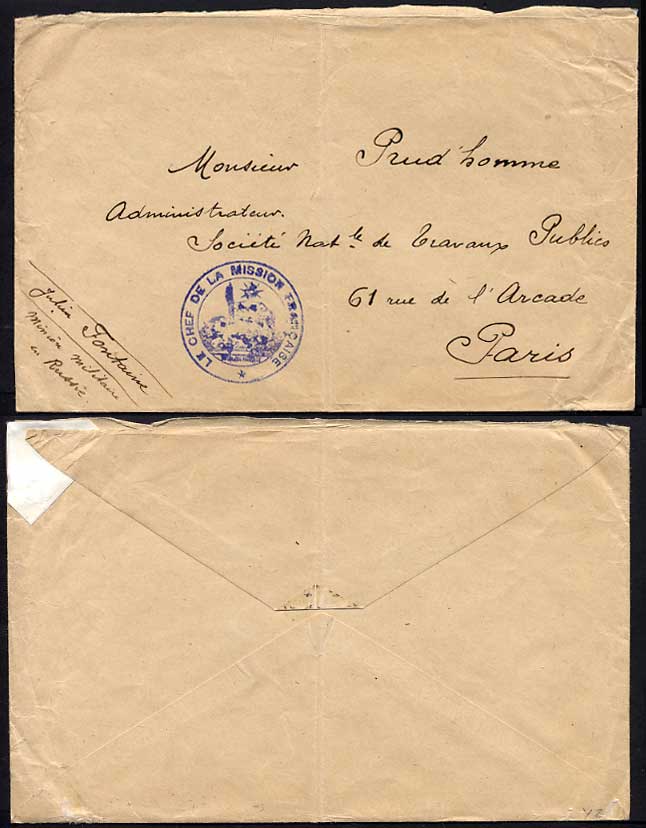 Monsieur Prud'homme
Administrateur.
Société Nat.le de Travaux Publics
61 rue de l'Arcade
Paris
LE CHEF DE LA MISSION FRANÇAISE
Fontaine
Mission Militaire
en Russie